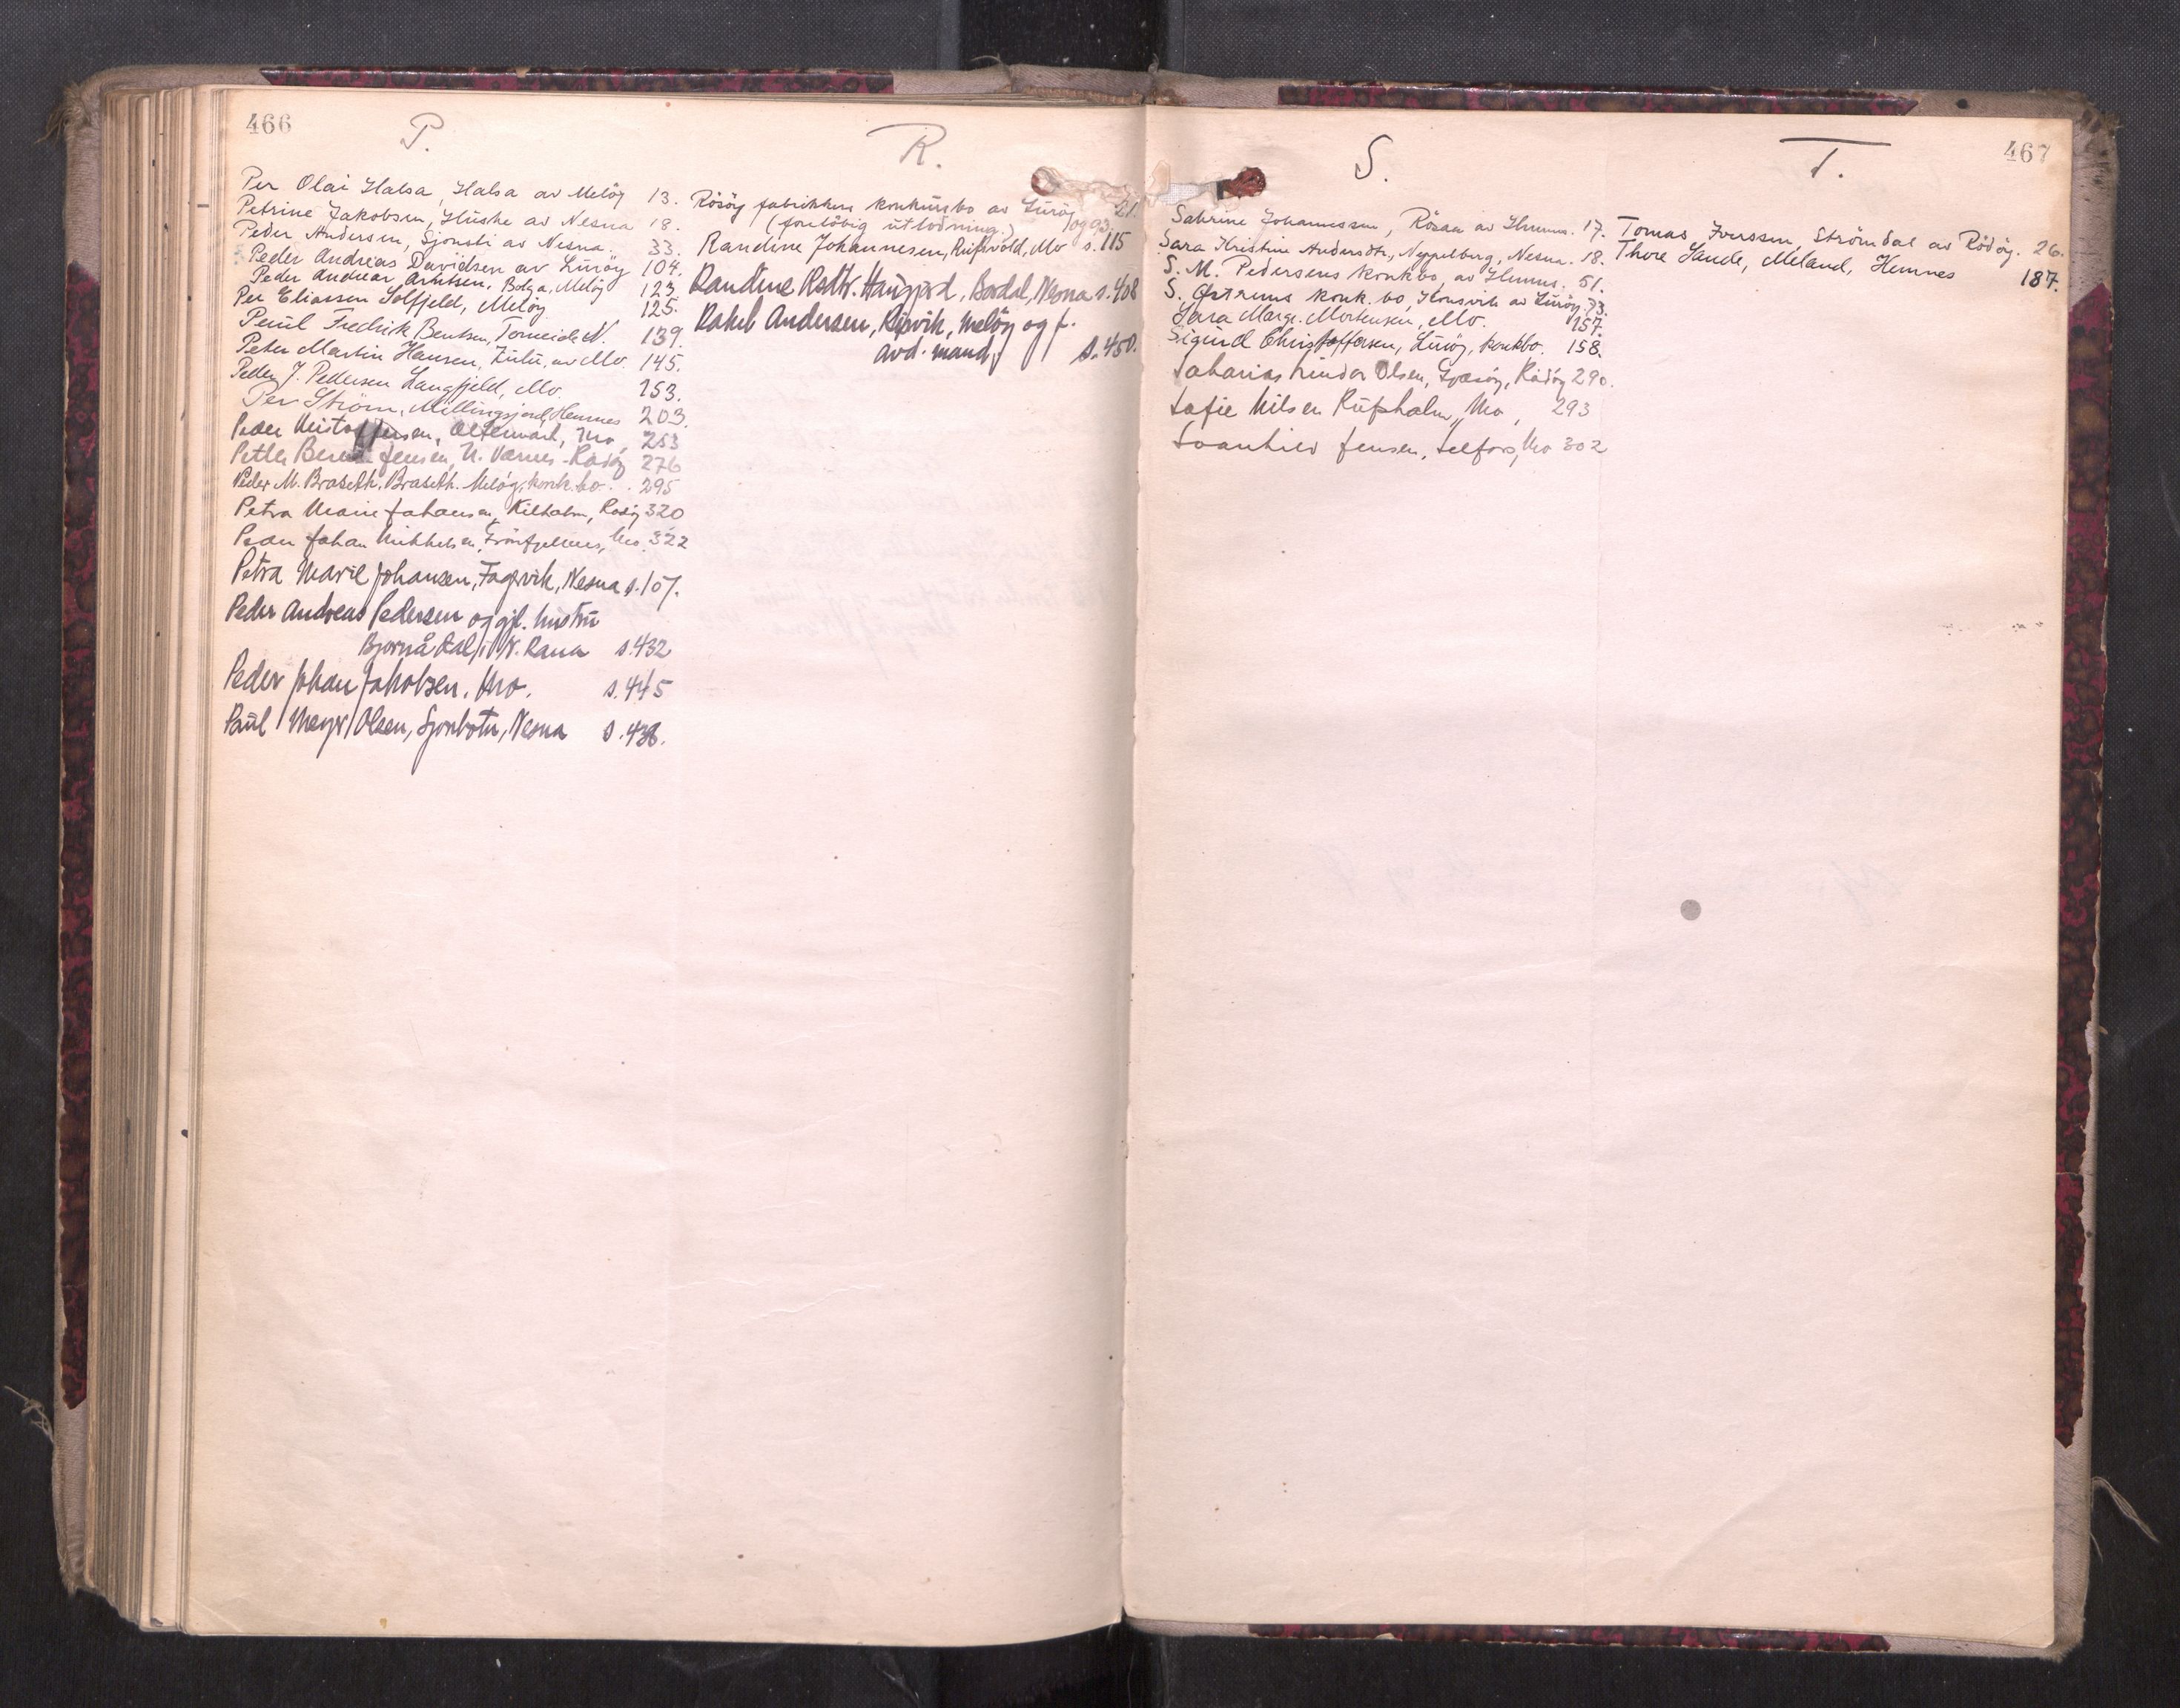 466
P.
Per Olai Halsa, Halsa av Melöy 13.
Petrine Jakobsen, Huske av Nesna 18.
Peder Andersen, Sjonsli av Nesna. 33.
Peder Andreas Davidsen av Luröy 104.
Peder Andreas Arntsen, Bolga, Melöy 123
Per Eliassen Solfjeld, Melöy 125.
Paul Fredrik Bentsen, Torneide N. 139.
Peter Martin Hansen, av Mo. 145.
Peder J. Pedersen Langfjeld, Mo. 153.
Per Ström, Millingsjord, Hemnes 203.
Peder Kristoffersen, Alternard, Mo, 253
Petter Jensen, N. Værnes - Rödöy 276
Peder M. Braseth. Braseth. Melöy, konk.bo. 295
Petra Marie Johansen, Kilholm, Rödöy 320
Peder Johan Mikkelsen, Mo. 322
Petra Marie Johansen, Fagervik, Nesna s.107.
Peder Andreas Pedersen og gjl. hustru
Bjornådal i N. Rana s.432
Peder Johan Jakobsen. Mo. s.445
Paul Meyer Olsen, Sjonbotn, Nesna s.438.
R.
Rösöy fabrikkers konkursbo av Luröy 21.
(foreløbig utlodning.) og 93.
Randine Johannesen, Rufsvold, Mo s. 115
Randine Rsdtr. Haugjord, Bardal, Nesna s.408
Rakel Andersen, Reipvik, Melöy og f.
avd. mand, s.450.
S.
Sabrine Johannessen, Rösaa av Hemnes. 17.
Sara Kristine Andersdtr, Neppelberg, Nesna. 18.
S. M. Pedersens konkbo, av Hemnes. 51.
S. Östrems konk.bo, Konsvik av Luröy. 73.
Sara Marge. Mortensen, Mo. 157.
Sigurd Christoffersen, Luröy, konkbo. 158.
Sakarias Olsen, Gjæsöy, Rödöy 290.
Sofie Nilsen Rufsholm, Mo, 293
Svanhild Jensen, Selfors, Mo 302
467
T.
Tomas Iverssen, Strömdal av Rödöy. 26.
Thore Sande, Meland, Hemnes 187.